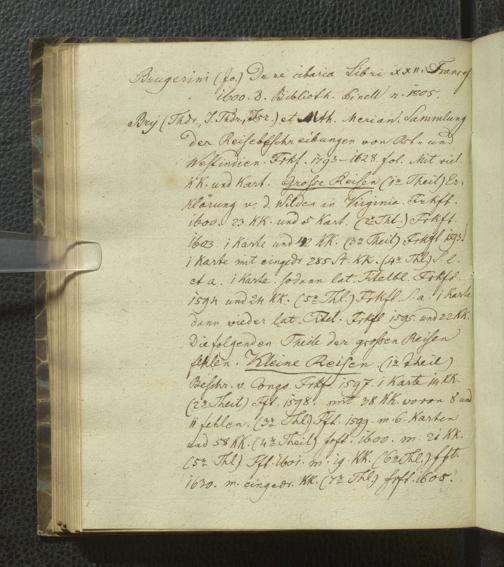 Brugerini (Jo.) De re cibaria Libri XXII. Francof
1600. 8. Biblioth. Binell n. 1805.
Bry (Thdr, J. Thdr, Isr.) et Mth. Merian, Sammlung
der Reisebeschreibungen von Ost- und
Westindien. Frkf. 1593–1628 fol. Mit viel
KK. und Kart. Grosse Reisen (1r Theil) Er-
klärung v. d. Wilden in Virginia. Frkft.
1600. 23 KK. und 5 Kart. (2r Thl.) Frkft.
1603. 1 Karte und 42 KK. (3r Theil) Frkft 1593.
1 Karte mit eingedr. 285 St. KK. (4r Thl.) S. l.
et a. 1 Karte. sodann lat. Titelbl. Frkft.
1594 und 24 KK. (5r Thl.) Frkft. S. a. 1 Karte
dann wieder lat. Titel. Frkft 1595. und 22 KK.
Die folgenden Theile der großen Reisen
fehlen. Kleine Reisen (1r Theil)
Beschr. v. Congo. Frkf. 1597. 1 Karte 14 KK.
(2r Theil) Fft. 1598. mit 38 KK. wovon 8 und
11 fehlen. (3r Thl) Fft. 1599. m. 6. Karten
und 58 KK. (4r Theil) frft. 1600. m. 21 KK.
(5r Thl) Fft. 1601. m. 19. KK. (6r Thl.) fft.
1630. m. eingedr. KK. (7r Thl) frft. 1605.